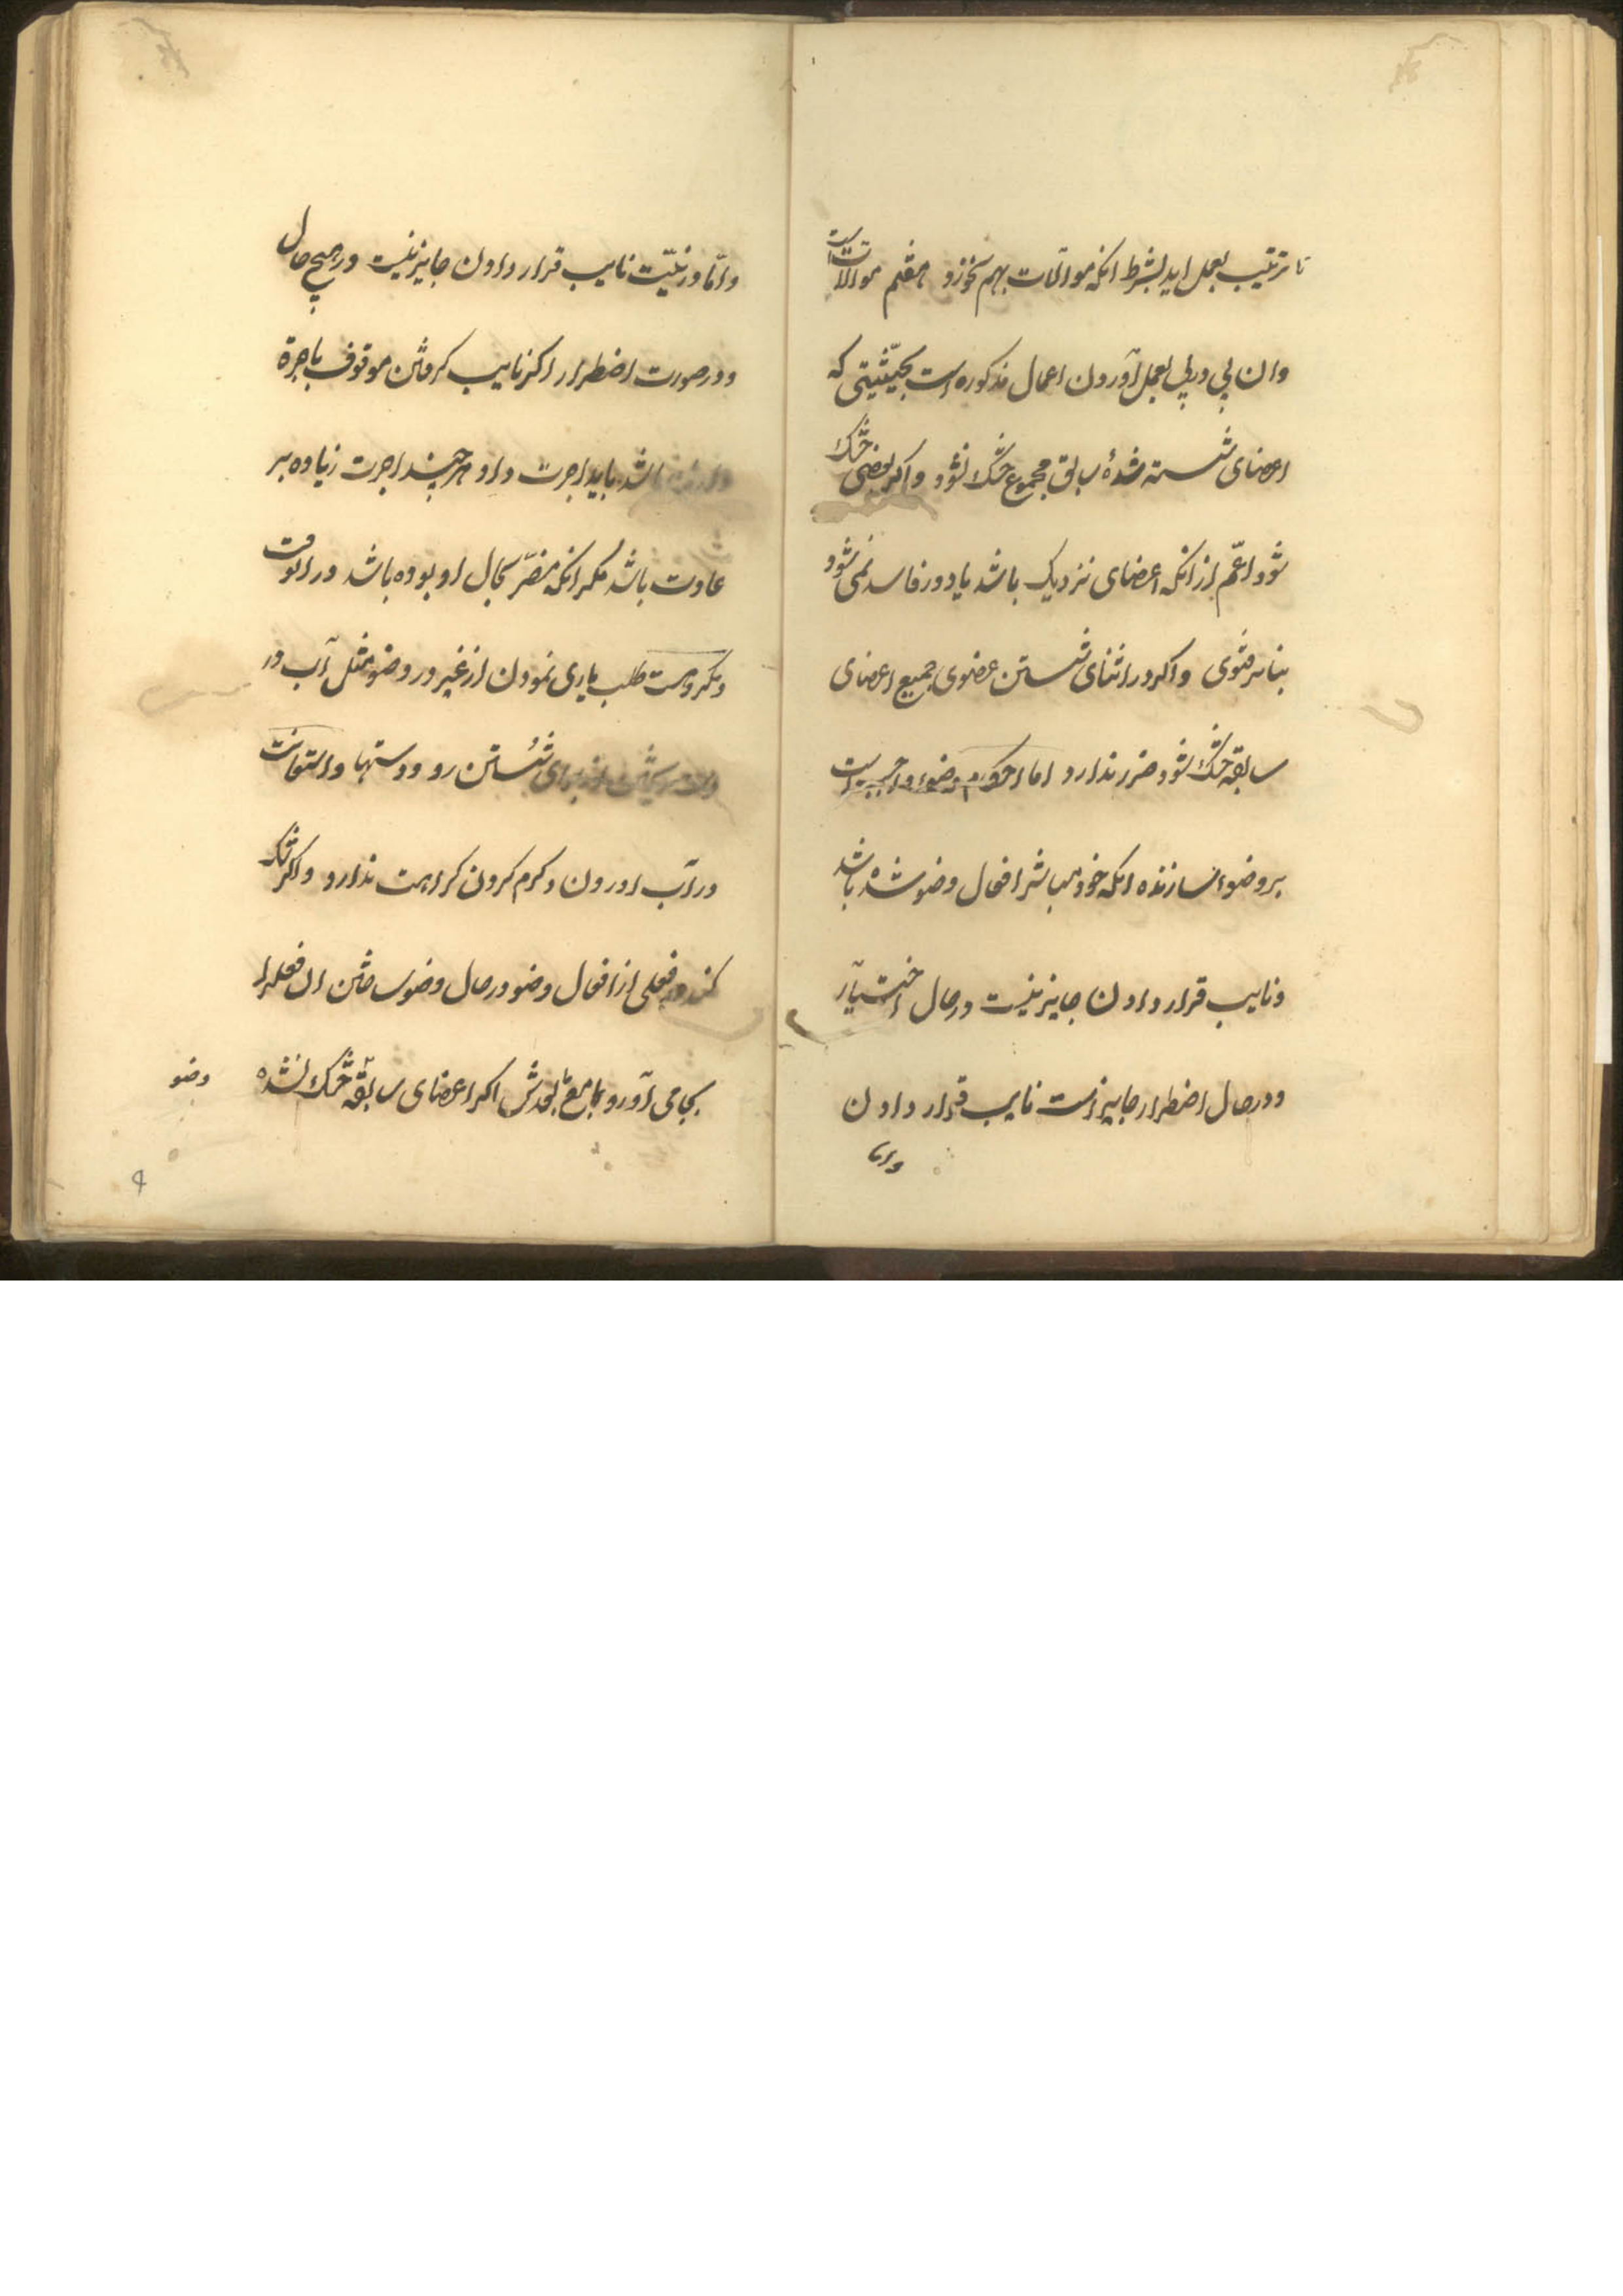 تا ترتیب بعمل اید بشرط انکه موالات بهم نخورد هفتم موالاتست
وان پی درپی بعمل آوردن اعمال مذکوره است بحیّثیتی که
اعضای شسته شدهٔ سابق مجموع خشک نشود واکر بعضی خشک
شود اعّم از انکه اعضای نزدیک باشد یا دور فاسد نمی شود
بنابر فتوی واکر در اثنای شستن عضوی جمیع اعضای
سابقه خشک شود ضرر ندارد اما احکام وضوء واجبست
بر وضوء سازنده انکه خود مباشر افعال وضو شده باشد
ونایب قرار دادن جایز نیست در حال اختیار
ودر حال اضطرار جایز است نایب قرار دادن
واما
وامّا در نیّت نایب قرار دادن جایز نیست در هیچ حال
ودر صورت اضطرار اکر نایب کرفتن موقوف باجرة
باشد باید اجرت داد هر چند اجرت زیاده بر
عادت باشد مکر انکه مضرّ بحال او بوده باشد در انوقت
ومکروهست طلب یاری نمودن از غیر در وضو مثل آب در
دست ریختن از برای شستن رو ودستها واستعانت
در آب اوردن وکرم کردن کراهت ندارد واکر شک
کند در فعلی از افعال وضو در حال وضو ساختن ان فعلرا
بجا می آورد با ما بعدش اکر اعضای سابقه خشک نشده
وضو
۹